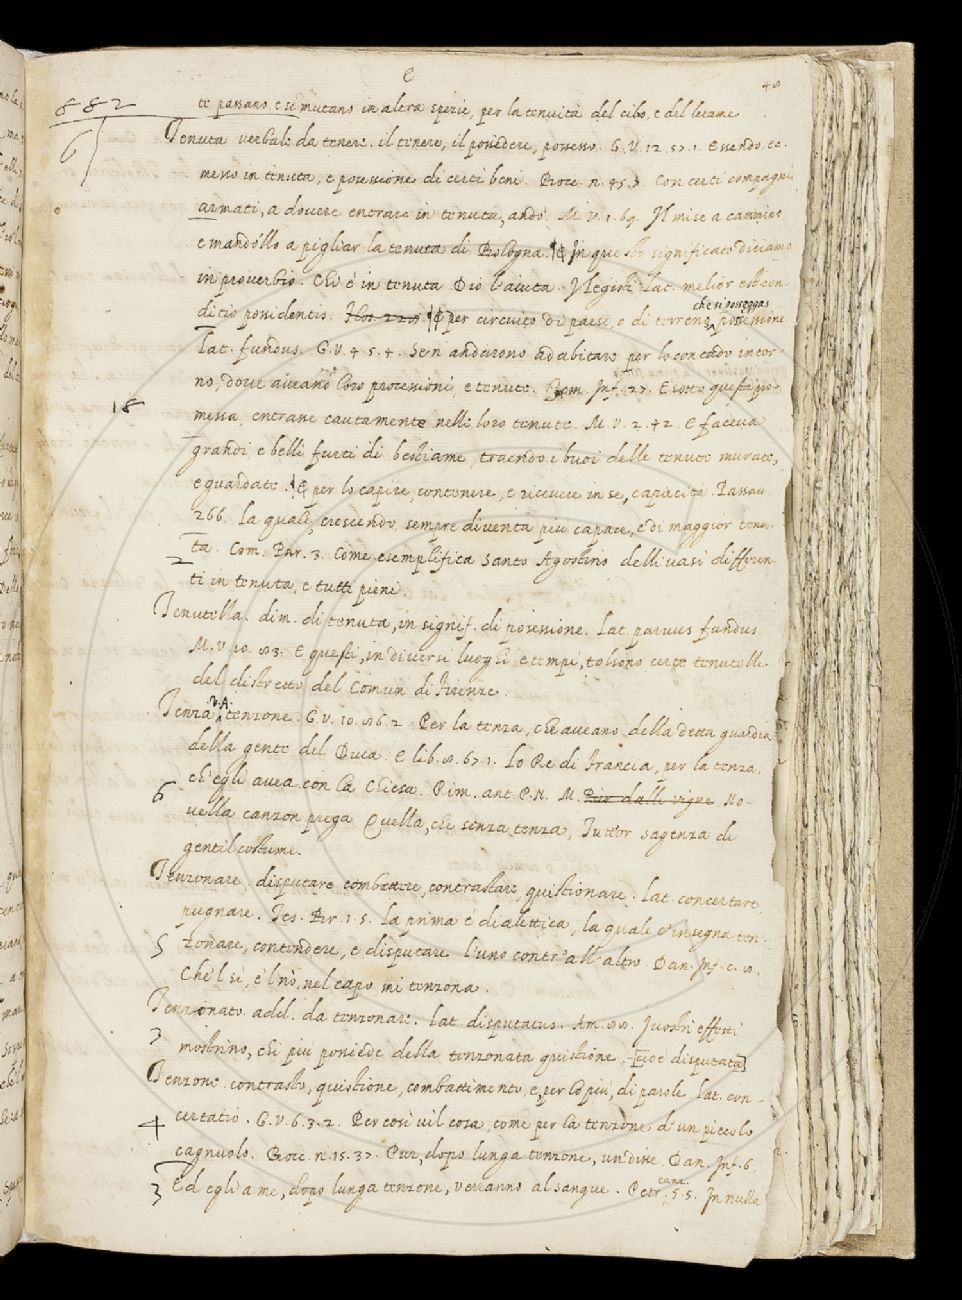 e
48
882
te passano, e si mutano in altra spezie, per la tenuità del cibo, e del letame
6
Tenuta verbale da tenere. il tenere, il possedere, possesso. G. V. 12. 57. 1. Essendo, ec.
messo in tenuta, e possessione di certi beni. Bocc. n. 45. 3. Con certi compagni
armati, a dovere entrare in tenuta, andò. M. V. 1. 69. Il mise a cammino
e mandollo a pigliar la tenuta di Bologna. ¶ E In questo significato diciamo
in proverbio. Chi è in tenuta Dio l'aiuta. I legisti Lat. melior est con-
ditio possidentis. ¶ E per circuito di paese, o di terreno, che si possegga, possessione
Lat. fundus. G. V. 4. 5. 4. Se n'andarono ad abitare per lo contado intor-
no, dove aveano loro possessioni, e tenute. But. Inf. 27. E sotto questa pro-
18
messa, entrasse cautamente nelle loro tenute. M. V. 2. 42. E faceva
grandi, e belli furti di bestiame, traendo i buoi delle tenute murate,
e guardate. ¶ E per lo capire, contenere, e ricevere in se, capacità. Passav.
266. La quale, crescendo, sempre diventa più capace, e di maggior tenu-
ta. Com. Par. 3. Come esemplifica Santo Agostino delli vasi differen-
2
ti in tenuta, e tutti pieni.
Tenutella. dim. di tenuta, in signif. di possessione. Lat. parvus fundus
M. V. 10. 83. E questi, in diversi luoghi e tempi, tolsono certe tenutelle
del distretto del Comun di Firenze.
Tenza V. A. tenzone. G. V. 10. 86. 2. Per la tenza, che aveano della detta guardia
della gente del Duca. E lib. 8. 67. 1. Lo Re di Francia, per la tenza,
ch'egli avea con la Chiesa. Rim. ant. P. N. M. Pier dalle vigne No-
6
vella canzon prega Quella, che senza tenza, Tuttor sagenza di
gentil costume.
Tenzonare, disputare combattere, contrastare, quistionare. Lat. concertare
pugnare. Tes. Br. 1. 5. La prima è dialettica, la quale c'insegna ten-
5
zonare, contendere, e disputare l'uno contr' all' altro. Dan. Inf. c. 8.
Che 'l sì, e 'l nò, nel capo mi tenzona.
Tenzonato. add. da tenzonare. Lat. disputatus. Am. 88. I vostri effetti
3
mostrino, chi più possiede della tenzonata quistione, [cioè disputata]
Tenzone. contrasto, quistione, combattimento, e, per lo più, di parole. Lat. con-
4
certatio. G. V. 6. 3. 2. Per così vil cosa, come per la tenzone d'un piccolo
cagnuolo. Bocc. n. 15. 37. Pur, dopo lunga tenzone, un disse. Dan. Inf. 6.
3
Ed egli a me, dopo lunga tenzone, verranno al sangue. Petr. canz. 5. 5. In nulla